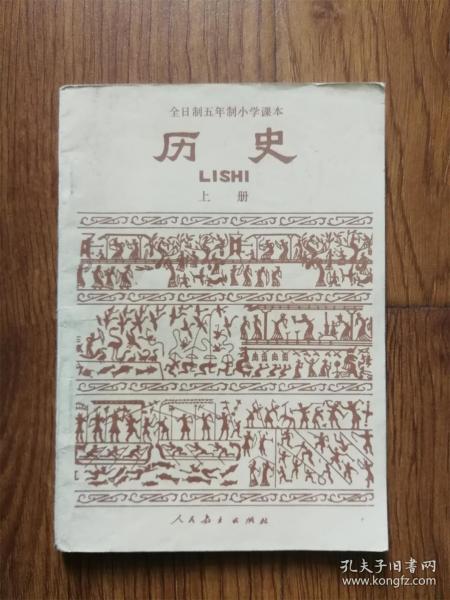 全日制五年制小学课本
历史
LISHI
上册
人民教育出版社
孔夫子旧书网
www.kongfz.com